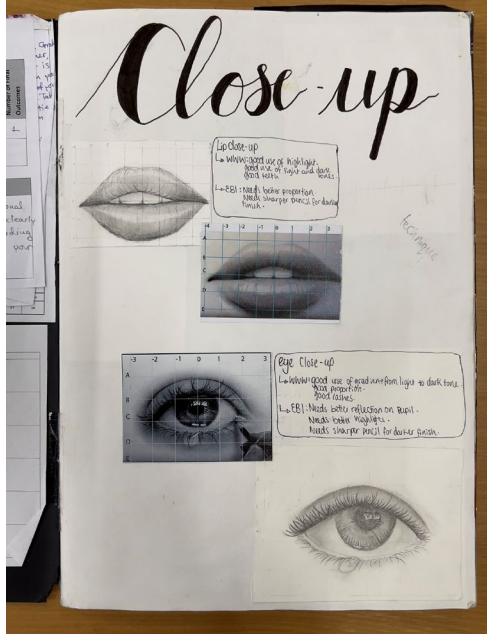 Number of Final
Outcomes
Close-up
Lip close-up
↳ WWW: good use of highlight.
good use of light and dark tones.
Good teeth
↳ EBI: Needs better proportion.
Needs sharper pencil for darker
finish.
technique
-4 -3 -2 -1 0 1 2 3 4
A
B
C
D
E
eye close-up
↳ WWW: good use of gradient from light to dark tone.
good proportion.
good lashes.
↳ EBI: Needs better reflection on pupil.
Needs better highlights.
Needs sharper pencil for darker finish.
-3 -2 -1 0 1 2 3
A
B
C
D
E